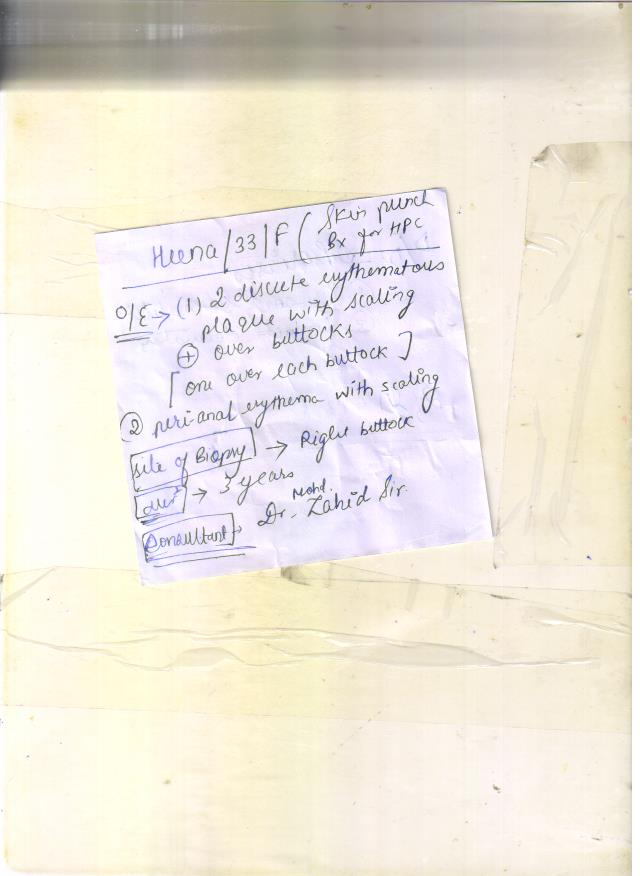 Heena/33/F ( Skin punch
Bx for HPC
O/E → (1) 2 discrete erythematous
plaque with scaling
⊕ over buttocks
[one over each buttock]
② peri-anal erythema with scaling
Site of Biopsy → Right buttock
→ 3 years
Consultant → Dr. Mohd. Zahid Sir.